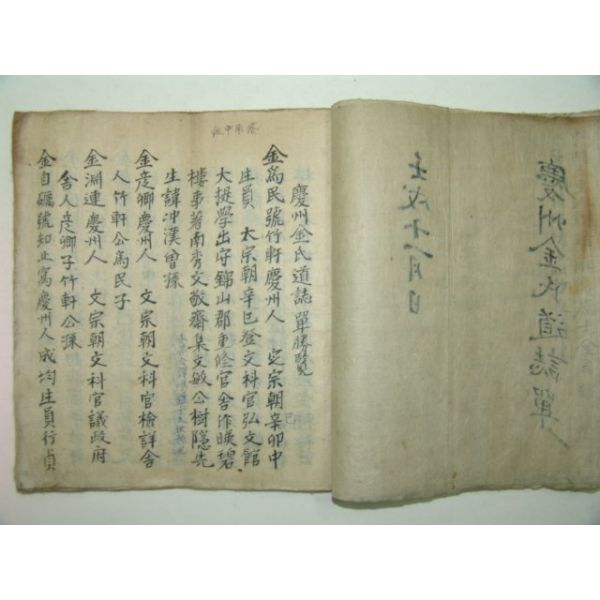 慶州金氏道誌單
壬戌十一月日
慶州金氏道誌單 勝覽
金爲民號竹軒慶州人 定宗朝辛卯中
生員 太宗朝辛巳登文科官弘文館
大提學出守錦山郡重修官舍作暎碧
樓事著南秀文敬齋集文敏公樹隱先
生諱冲漢曾孫
金彦卿慶州人 文宗朝文科官檢詳舍
人竹軒公爲民子
金淵連慶州人 文宗朝文科官議政府
舍人彦卿子竹軒公孫
金自礪號知止窩慶州人成均生員行貞